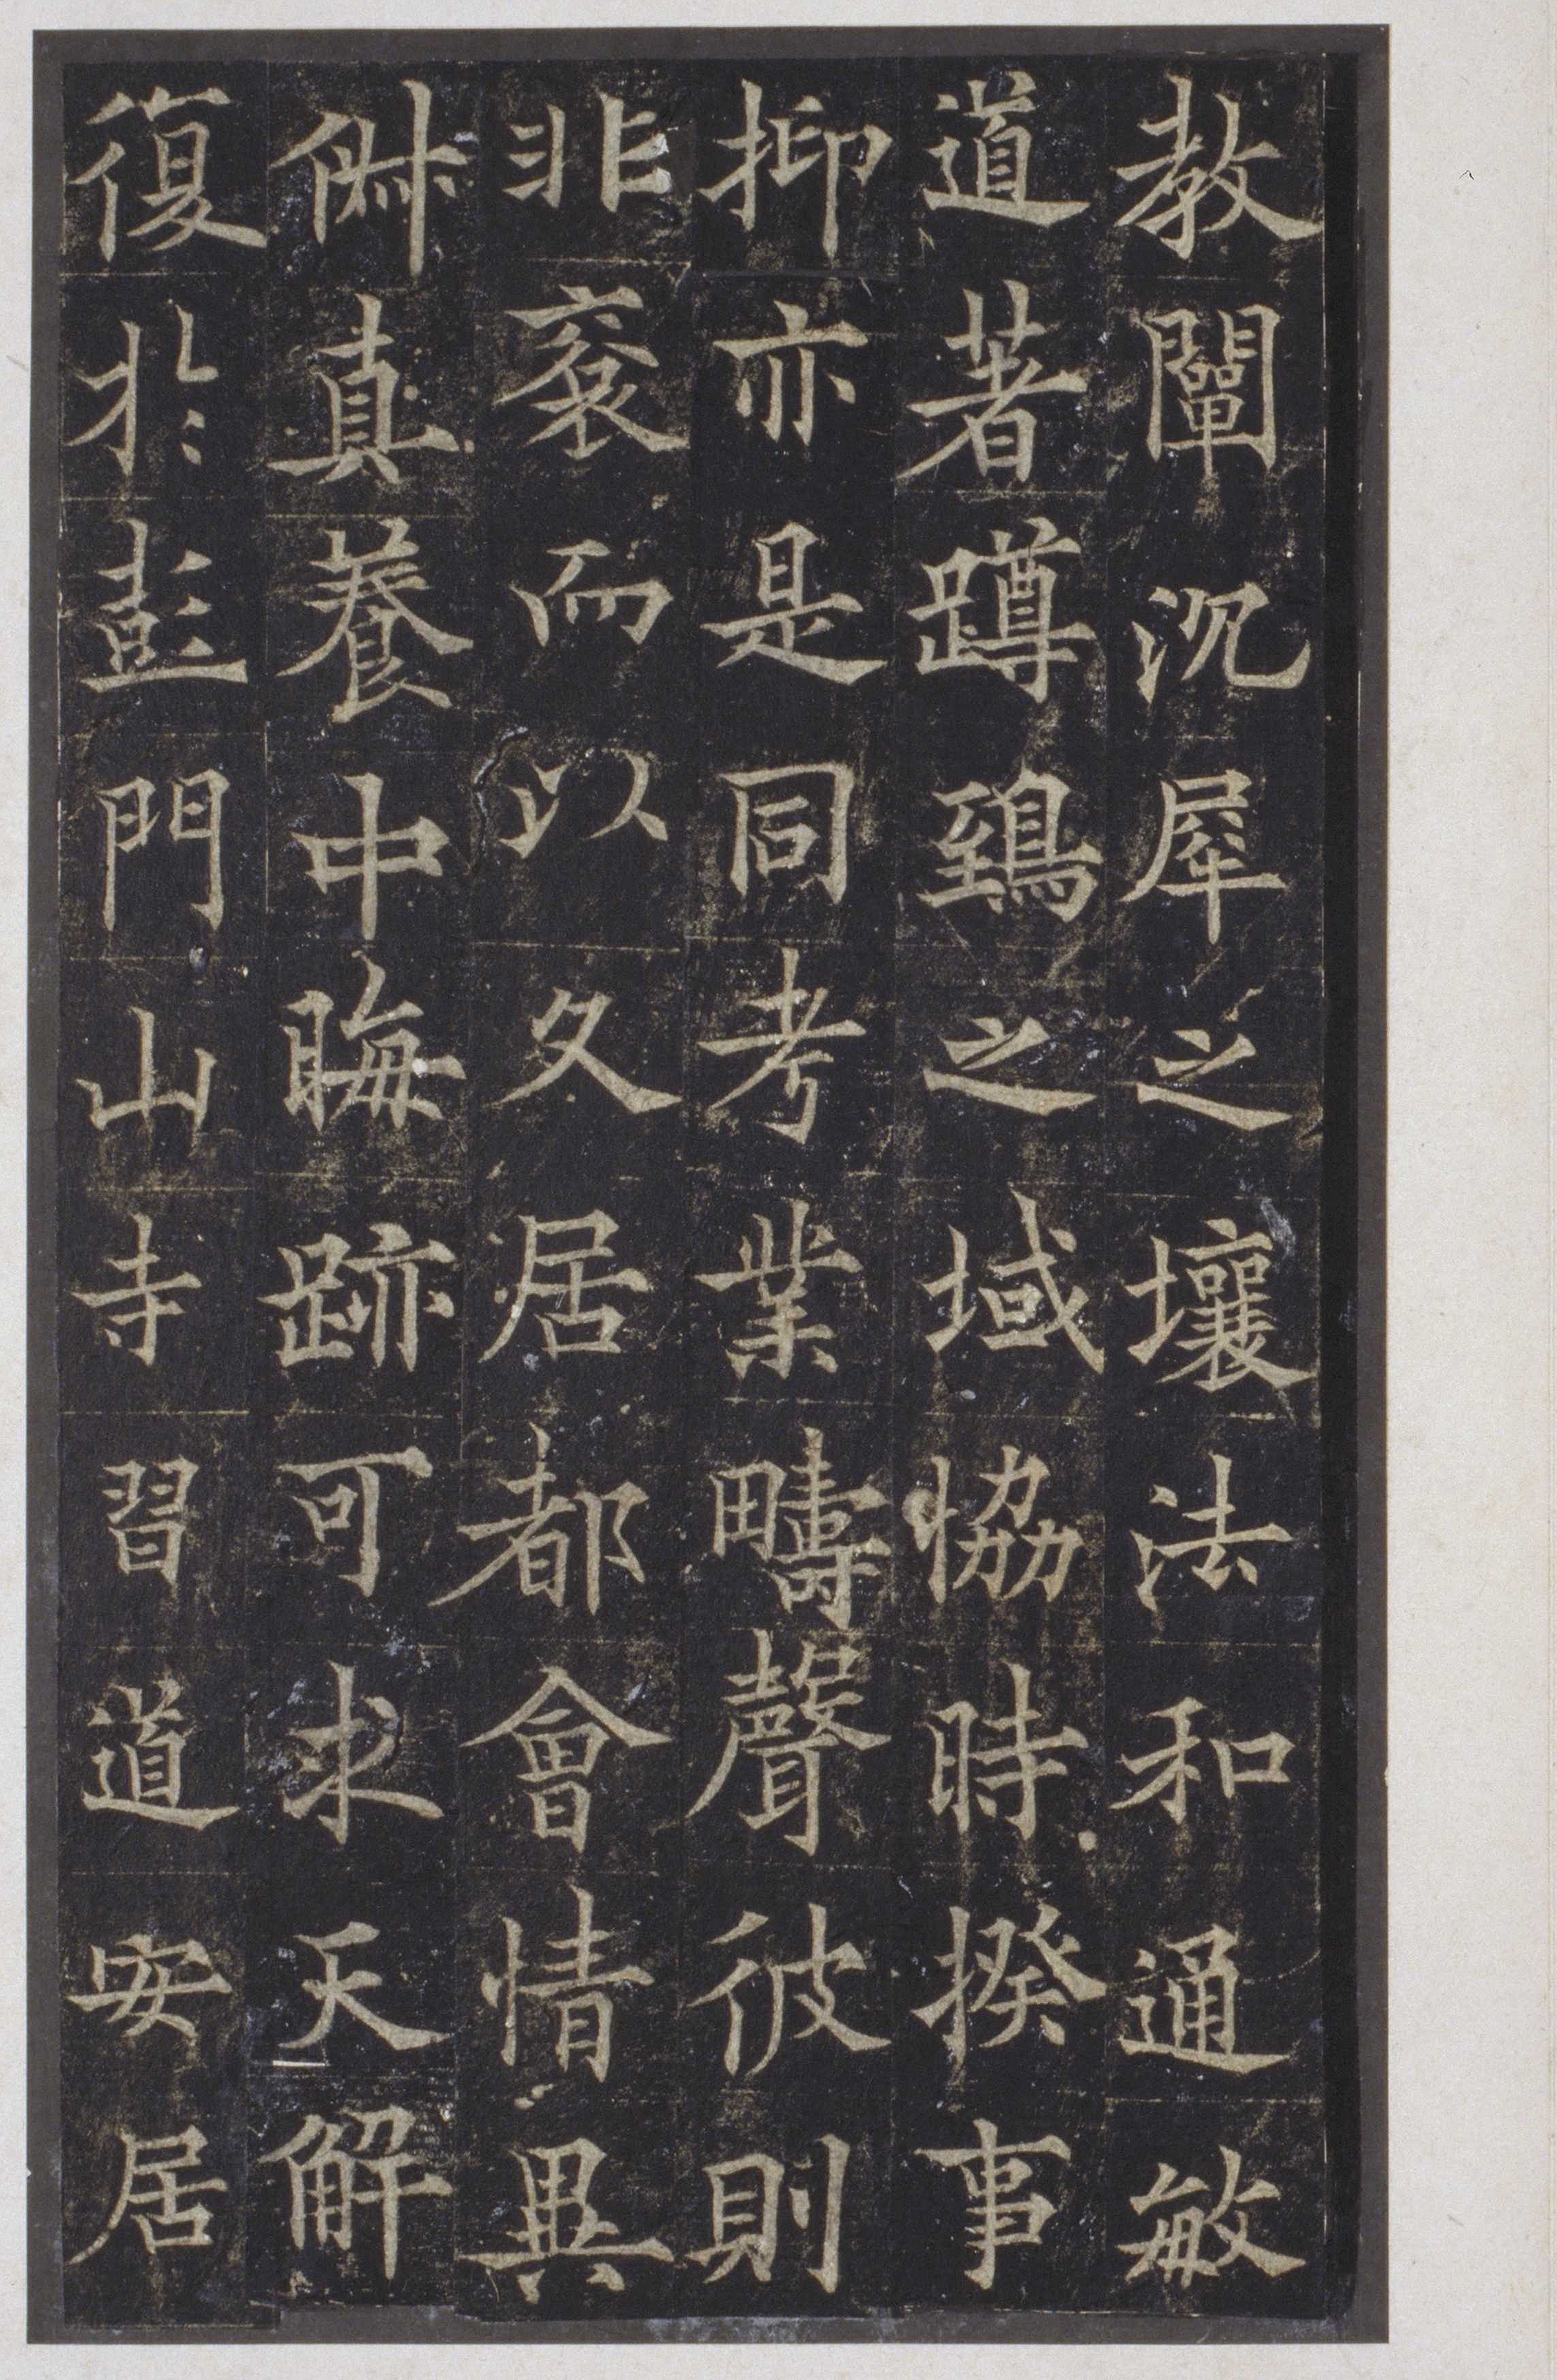 教闡沉犀之壤法和通敏
道著蹲鵄之域恊時揆事
抑亦是同考業疇聲彼則
非衮而以久居都會情異
㑣真養中晦跡可求天解
復於彭門山寺習道安居